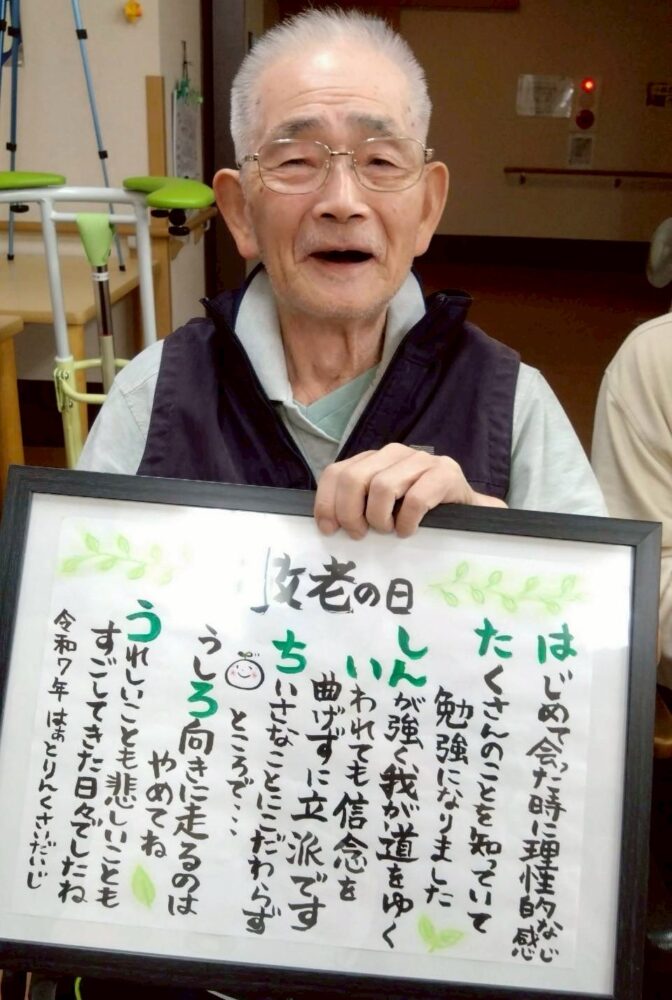 敬老の日
はじめて会った時に理性的な感じ
たくさんのことを知っていて
勉強になりました
しんが強く、我が道をゆく
いわれても信念を
曲げずに立派です
ちいさなことにこだわらず
ところで・・・
うしろ向きに走るのは
やめてね
うれしいことも悲しいことも
すごしてきた日々でしたね
令和7年 はぁとりんくさいだいじ